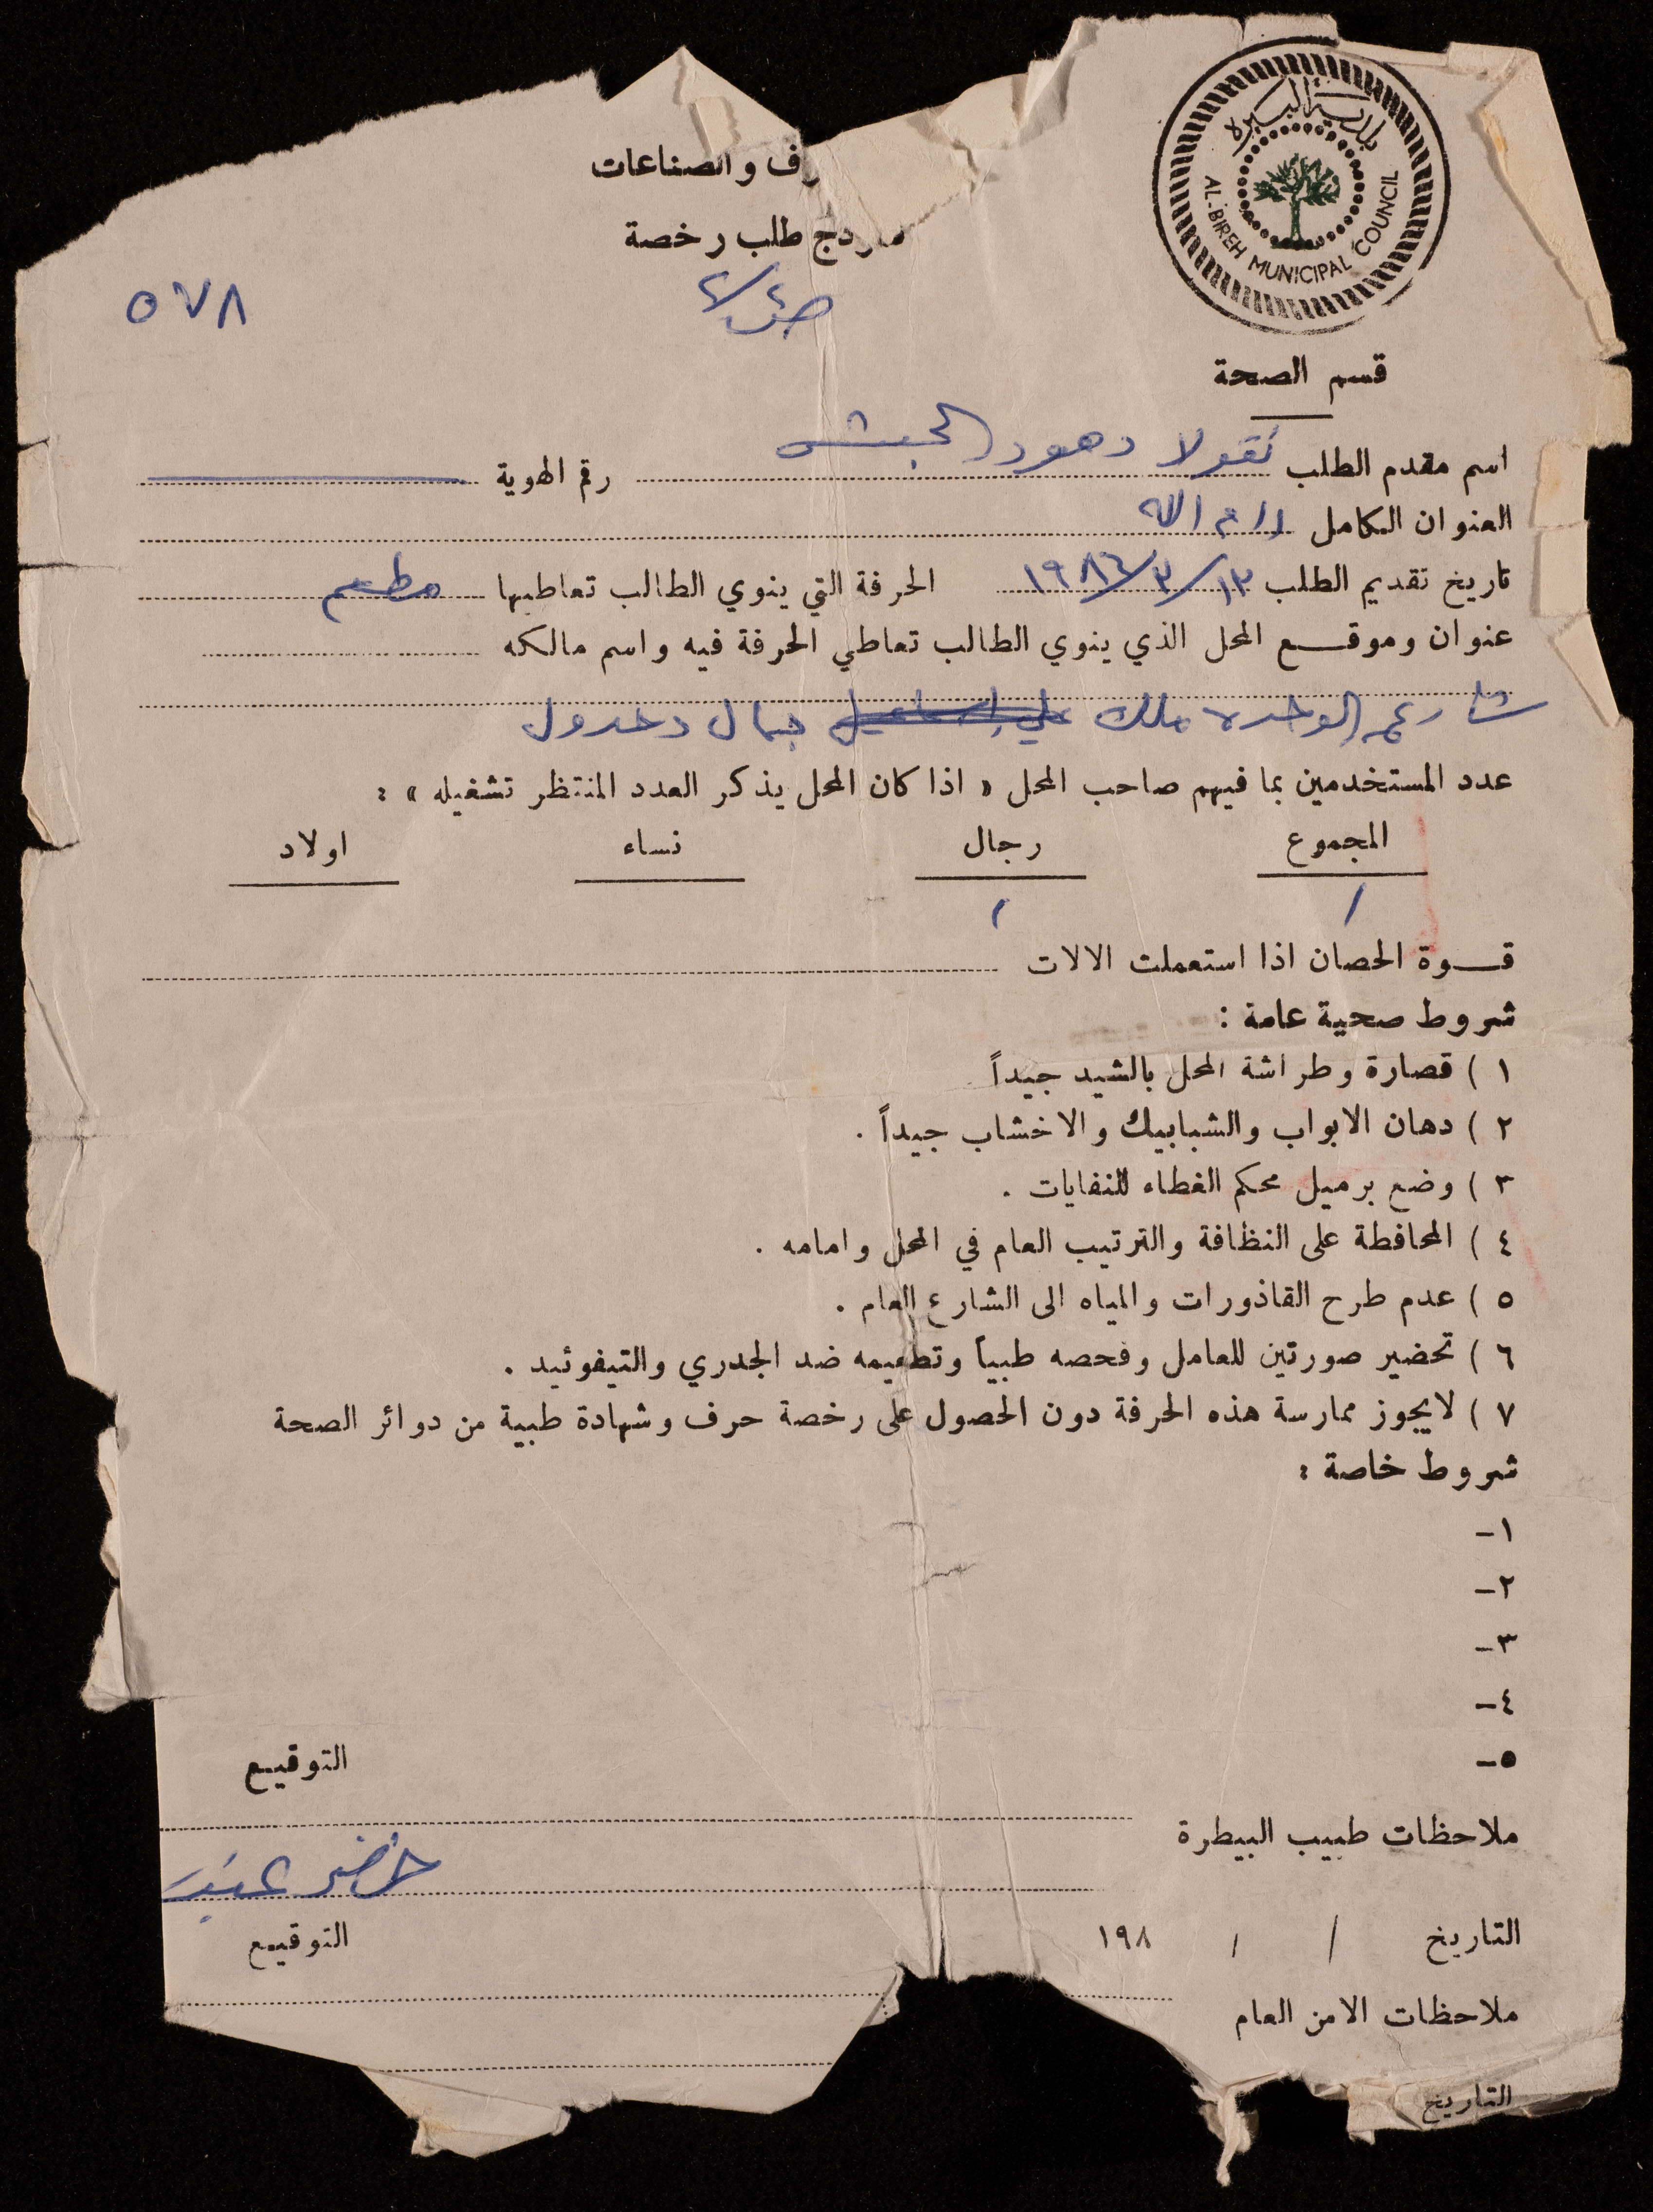 بلدية البيرة
AL-BIREH MUNICIPAL COUNCIL
رف والصناعات
طلب رخصة
٥٧٨
قسم الصحة
اسم مقدم الطلب نقولا دهود الحبش رقم الهوية
العنوان الكامل رام الله
تاريخ تقديم الطلب ١٣/٣/١٩٨٦ الحرفة التي ينوي الطالب تعاطيها مطعم
عنوان وموقع المحل الذي ينوي الطالب تعاطي الحرفة فيه واسم مالكه
شارع الوحده ملك علي اسماعيل جمال دحدول
عدد المستخدمين بما فيهم صاحب المحل « اذا كان المحل يذكر العدد المنتظر تشغيله » :
المجموع رجال نساء اولاد
١ ١
قوة الحصان اذا استعملت الالات
شروط صحية عامة :
١ ) قصارة وطراشة المحل بالشيد جيداً
٢ ) دهان الابواب والشبابيك والاخشاب جيداً .
٣ ) وضع برميل محكم الغطاء للنفايات .
٤ ) المحافظة على النظافة والترتيب العام في المحل وامامه .
٥ ) عدم طرح القاذورات والمياه الى الشارع العام .
٦ ) تحضير صورتين للعامل وفحصه طبياً وتطعيمه ضد الجدري والتيفوئيد .
٧ ) لايجوز ممارسة هذه الحرفة دون الحصول على رخصة حرف وشهادة طبية من دوائر الصحة
شروط خاصة :
١-
٢-
٣-
٤-
٥-
التوقيع
ملاحظات طبيب البيطرة
التاريخ / / ١٩٨
التوقيع
ملاحظات الامن العام
التاريخ